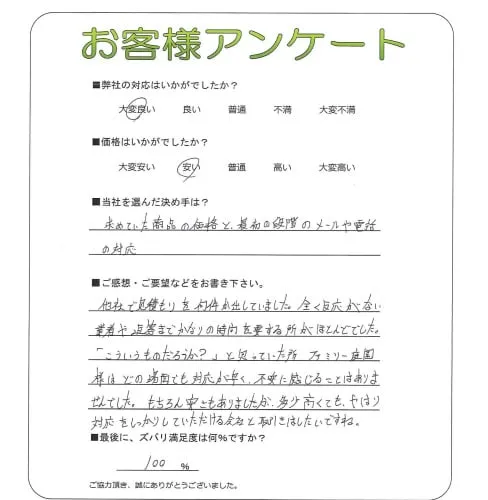 お客様アンケート
■弊社の対応はいかがでしたか？
大変良い 良い 普通 不満 大変不満
■価格はいかがでしたか？
大変安い 安い 普通 高い 大変高い
■当社を選んだ決め手は？
求めていた商品の価格と、最初の段階のメールや電話
の対応
■ご感想・ご要望などをお書き下さい。
他社で見積もりを何件か出していました。全く反応がない
業者や返答までかなりの時間を要する所がほとんどでした。
「こういうものだろうか？」と思っていた所 ファミリー庭園
様はどの場面でも対応が早く、不安に感じることはありま
せんでした。もちろん安さもありましたが、多少高くても、やはり
対応をしっかりしていただける会社と取引きはしたいですね。
■最後に、ズバリ満足度は何％ですか？
100 %
ご協力頂き、誠にありがとうございました。